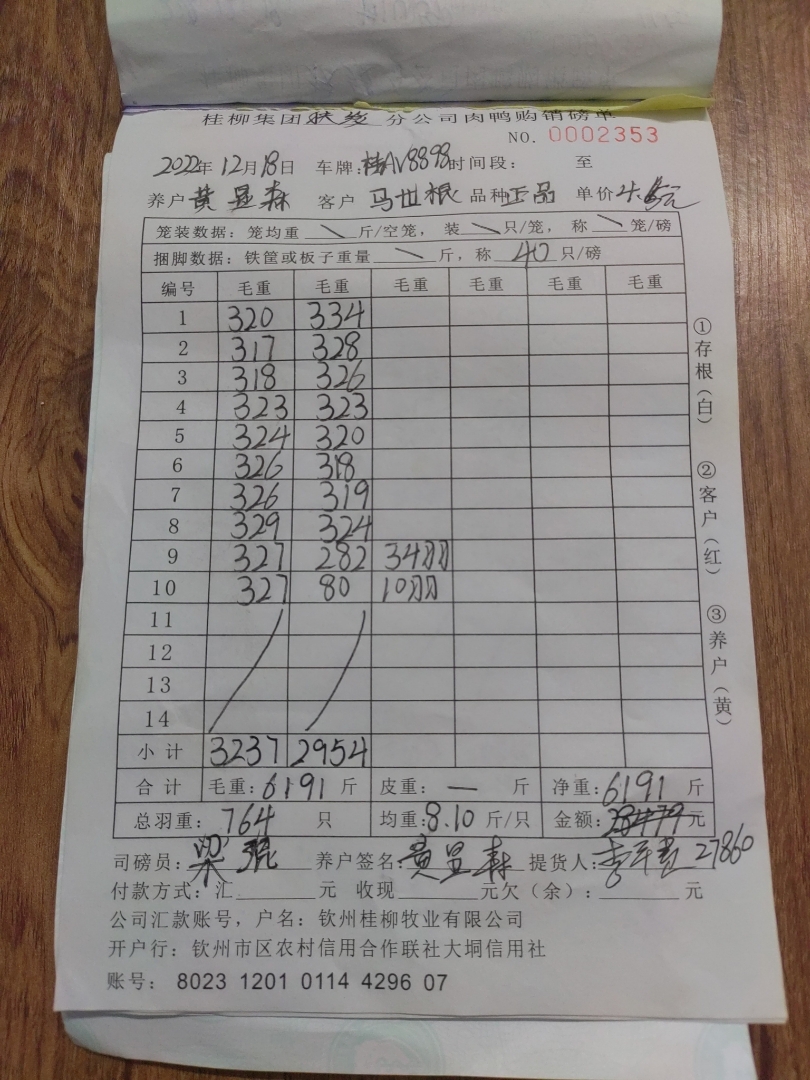 桂柳集团扶绥分公司肉鸭购销磅单
NO. 0002353
2022年12月18日 车牌:桂AV8898时间段: 至
养户黄显森 客户马世根 品种正品 单价4.5元
笼装数据: 笼均重 \ 斤/空笼, 装 \ 只/笼, 称 \ 笼/磅
捆脚数据: 铁筐或板子重量 \ 斤, 称 40 只/磅
编号 毛重 毛重 毛重 毛重 毛重 毛重
1 320 334
2 317 328
3 318 326
4 323 323
5 324 320
6 326 318
7 326 319
8 329 324
9 327 282 34羽
10 327 80 10羽
11
12
13
14
小计 3237 2954
合计 毛重: 6191 斤 皮重: — 斤 净重: 6191 斤
总羽重: 764 只 均重: 8.10 斤/只 金额: 28479元
司磅员: 梁琨 养户签名: 黄显森 提货人: 27860
付款方式: 汇 元 收现 元欠(余): 元
公司汇款账号, 户名: 钦州桂柳牧业有限公司
开户行: 钦州市区农村信用合作联社大垌信用社
账号: 8023 1201 0114 4296 07
①存根(白)
②客户(红)
③养户(黄)